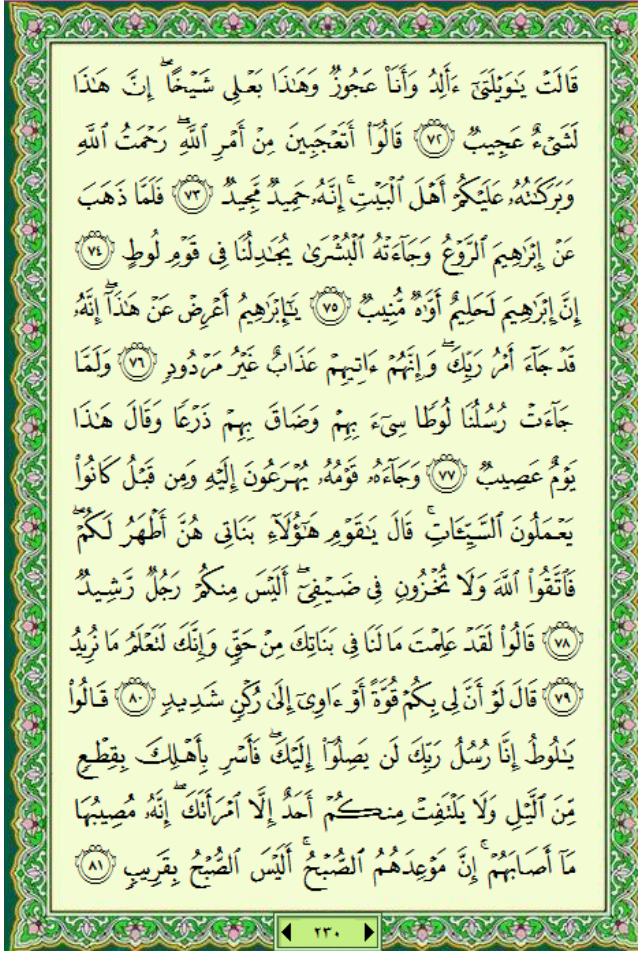 قَالَتْ يَـٰوَيْلَتَىٰٓ ءَأَلِدُ وَأَنَا۠ عَجُوزٌ وَهَـٰذَا بَعْلِى شَيْخًا ۖ إِنَّ هَـٰذَا
لَشَىْءٌ عَجِيبٌ ﴿٧٢﴾ قَالُوٓا۟ أَتَعْجَبِينَ مِنْ أَمْرِ ٱللَّهِ ۖ رَحْمَتُ ٱللَّهِ
وَبَرَكَـٰتُهُۥ عَلَيْكُمْ أَهْلَ ٱلْبَيْتِ ۚ إِنَّهُۥ حَمِيدٌ مَّجِيدٌ ﴿٧٣﴾ فَلَمَّا ذَهَبَ
عَنْ إِبْرَٰهِيمَ ٱلرَّوْعُ وَجَآءَتْهُ ٱلْبُشْرَىٰ يُجَـٰدِلُنَا فِى قَوْمِ لُوطٍ ﴿٧٤﴾
إِنَّ إِبْرَٰهِيمَ لَحَلِيمٌ أَوَّٰهٌ مُّنِيبٌ ﴿٧٥﴾ يَـٰٓإِبْرَٰهِيمُ أَعْرِضْ عَنْ هَـٰذَآ ۖ إِنَّهُۥ
قَدْ جَآءَ أَمْرُ رَبِّكَ ۖ وَإِنَّهُمْ ءَاتِيهِمْ عَذَابٌ غَيْرُ مَرْدُودٍ ﴿٧٦﴾ وَلَمَّا
جَآءَتْ رُسُلُنَا لُوطًا سِىٓءَ بِهِمْ وَضَاقَ بِهِمْ ذَرْعًا وَقَالَ هَـٰذَا
يَوْمٌ عَصِيبٌ ﴿٧٧﴾ وَجَآءَهُۥ قَوْمُهُۥ يُهْرَعُونَ إِلَيْهِ وَمِن قَبْلُ كَانُوا۟
يَعْمَلُونَ ٱلسَّيِّـَٔاتِ ۚ قَالَ يَـٰقَوْمِ هَـٰٓؤُلَآءِ بَنَاتِى هُنَّ أَطْهَرُ لَكُمْ ۖ
فَٱتَّقُوا۟ ٱللَّهَ وَلَا تُخْزُونِ فِى ضَيْفِىٓ ۖ أَلَيْسَ مِنكُمْ رَجُلٌ رَّشِيدٌ
﴿٧٨﴾ قَالُوا۟ لَقَدْ عَلِمْتَ مَا لَنَا فِى بَنَاتِكَ مِنْ حَقٍّ وَإِنَّكَ لَتَعْلَمُ مَا نُرِيدُ
﴿٧٩﴾ قَالَ لَوْ أَنَّ لِى بِكُمْ قُوَّةً أَوْ ءَاوِىٓ إِلَىٰ رُكْنٍ شَدِيدٍ ﴿٨٠﴾ قَالُوا۟
يَـٰلُوطُ إِنَّا رُسُلُ رَبِّكَ لَن يَصِلُوٓا۟ إِلَيْكَ ۖ فَأَسْرِ بِأَهْلِكَ بِقِطْعٍ
مِّنَ ٱلَّيْلِ وَلَا يَلْتَفِتْ مِنكُمْ أَحَدٌ إِلَّا ٱمْرَأَتَكَ ۖ إِنَّهُۥ مُصِيبُهَا
مَآ أَصَابَهُمْ ۚ إِنَّ مَوْعِدَهُمُ ٱلصُّبْحُ ۚ أَلَيْسَ ٱلصُّبْحُ بِقَرِيبٍ ﴿٨١﴾
٢٣٠